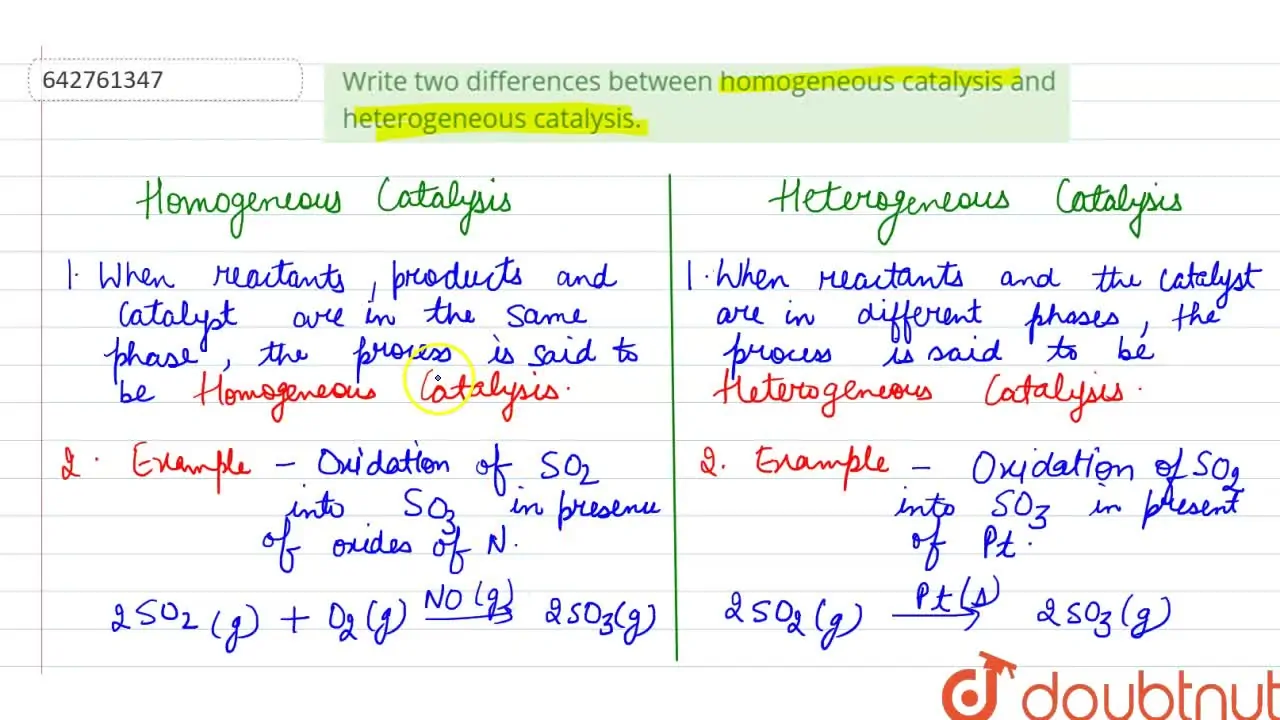 642761347
Write two differences between homogeneous catalysis and
heterogeneous catalysis.
Homogeneous Catalysis
1. When reactants, products and
Catalyst are in the same
phase, the process is said to
be Homogeneous Catalysis.
2. Example – Oxidation of SO2
into SO3 in presence
of oxides of N.
2SO2 (g) + O2 (g) NO (g) → 2SO3 (g)
Heterogeneous Catalysis
1. When reactants and the catalyst
are in different phases, the
process is said to be
Heterogeneous Catalysis.
2. Example – Oxidation of SO2
into SO3 in present
of Pt.
2SO2 (g) Pt (s) → 2SO3 (g)
doubtnut